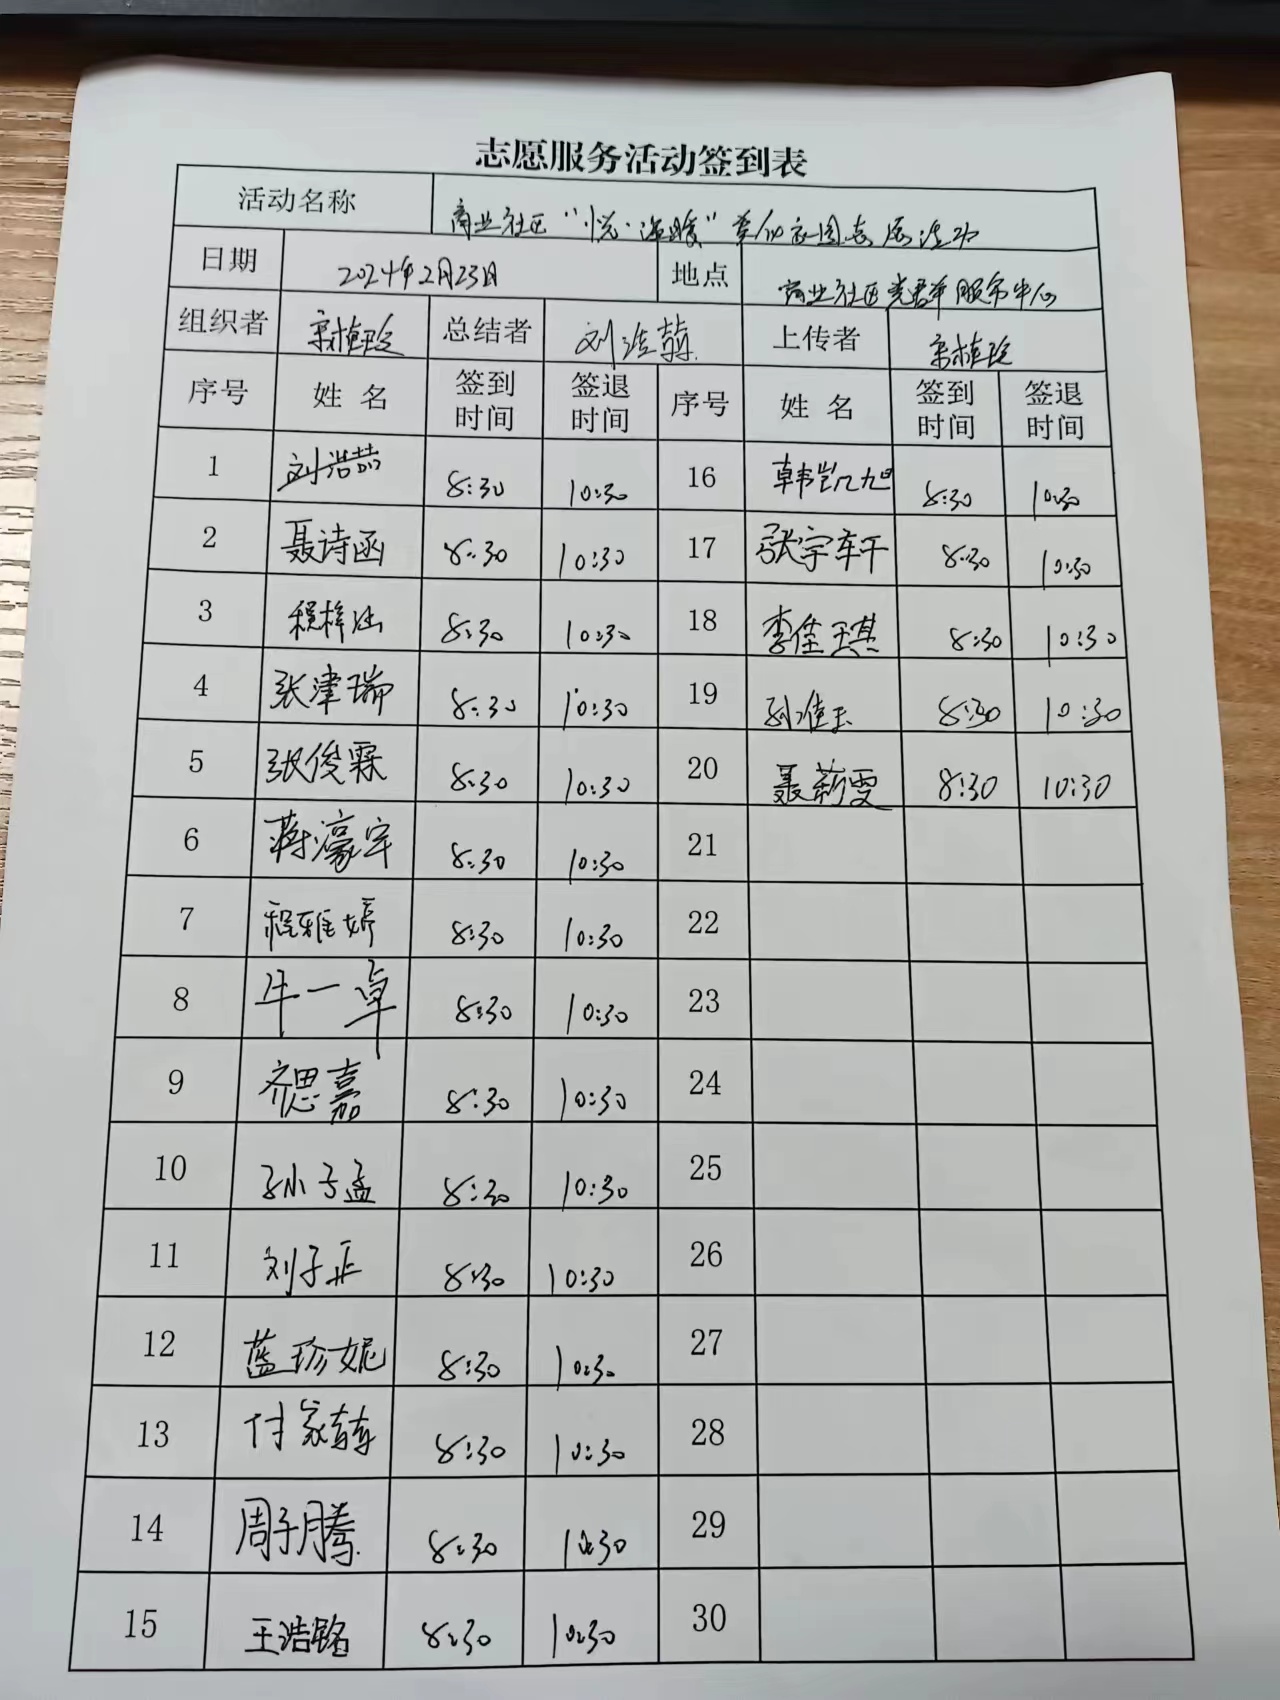 志愿服务活动签到表
活动名称 商业社区“悦·温暖”
日期 2024年2月23日 地点 商业社区党群服务中心
组织者 总结者 刘浩 上传者
序号 姓名 签到时间 签退时间 序号 姓名 签到时间 签退时间
1 刘浩喆 8:30 10:30 16 韩凯旭 8:30 10:30
2 聂诗函 8:30 10:30 17 张宇轩 8:30 10:30
3 程梓涵 8:30 10:30 18 李佳琪 8:30 10:30
4 张津瑞 8:30 10:30 19 8:30 10:30
5 张俊霖 8:30 10:30 20 聂莉雯 8:30 10:30
6 蒋濠宇 8:30 10:30 21
7 程雅婷 8:30 10:30 22
8 牛一卓 8:30 10:30 23
9 齐思嘉 8:30 10:30 24
10 孙子孟 8:30 10:30 25
11 刘子正 8:30 10:30 26
12 蓝珍妮 8:30 10:30 27
13 付家 8:30 10:30 28
14 周子腾 8:30 10:30 29
15 王浩铭 8:30 10:30 30